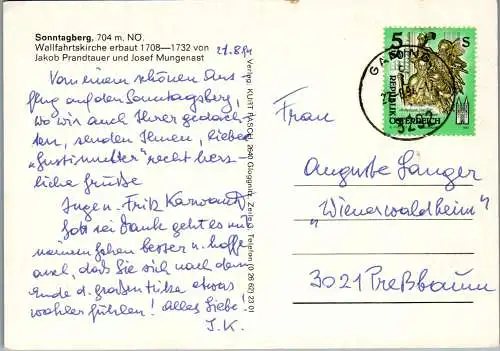 Sonntagberg, 704 m. NÖ.
Wallfahrtskirche erbaut 1708—1732 von
Jakob Prandtauer und Josef Mungenast
21.8.94
Von einem schönen Aus
flug auf den Sonntagsberg,
wo wir auch Ihrer gedach-
ten, senden Ihnen, liebes
recht herz-
liche Grüße
Fritz
Gott sei Dank geht es mir
meinem besser u. hoffe
auch, daß Sie sich nach dem
Ende d. großen Hitze etwas
wohler fühlen! Alles Liebe!
I.K.
Verlag KURT PASCH, 2640 Gloggnitz, Zeile, Telefon (0 26 62) 22 01
5 S
REPUBLIK
ÖSTERREICH
GAMING
3292
Frau
Auguste Länger
„Wienerwaldheim"
3021 Preßbaum